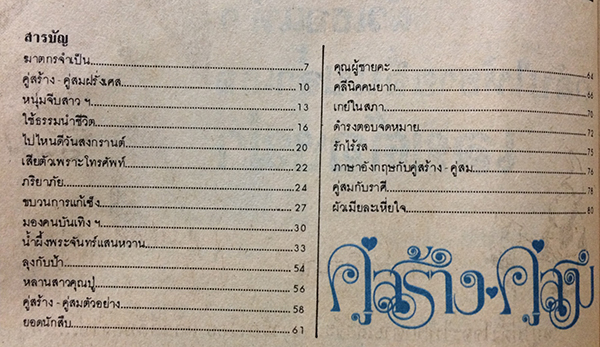 สารบัญ
ฆาตกรจำเป็น 7
คู่สร้าง - คู่สมฝรั่งเศส 10
หนุ่มจีบสาว ฯ 13
ใช้ธรรมนำชีวิต 16
ไปไหนดีวันสงกรานต์ 20
เสียตัวเพราะโทรศัพท์ 22
ภริยาภัย 24
ขบวนการแก้เซ็ง 27
มองคนบันเทิง ฯ 30
น้ำผึ้งพระจันทร์แสนหวาน 33
ลุงกับป้า 54
หลานสาวคุณปู่ 56
คู่สร้าง - คู่สมตัวอย่าง 58
ยอดนักสืบ 61
คุณผู้ชายคะ 64
คลีนิคคนยาก 66
เกย์ในสภา 70
ดำรงตอบจดหมาย 72
รักไร้รส 75
ภาษาอังกฤษกับคู่สร้าง - คู่สม 76
คู่สมกับราศี 78
ผัวเมียละเหี่ยใจ 80
คู่สร้าง คู่สม